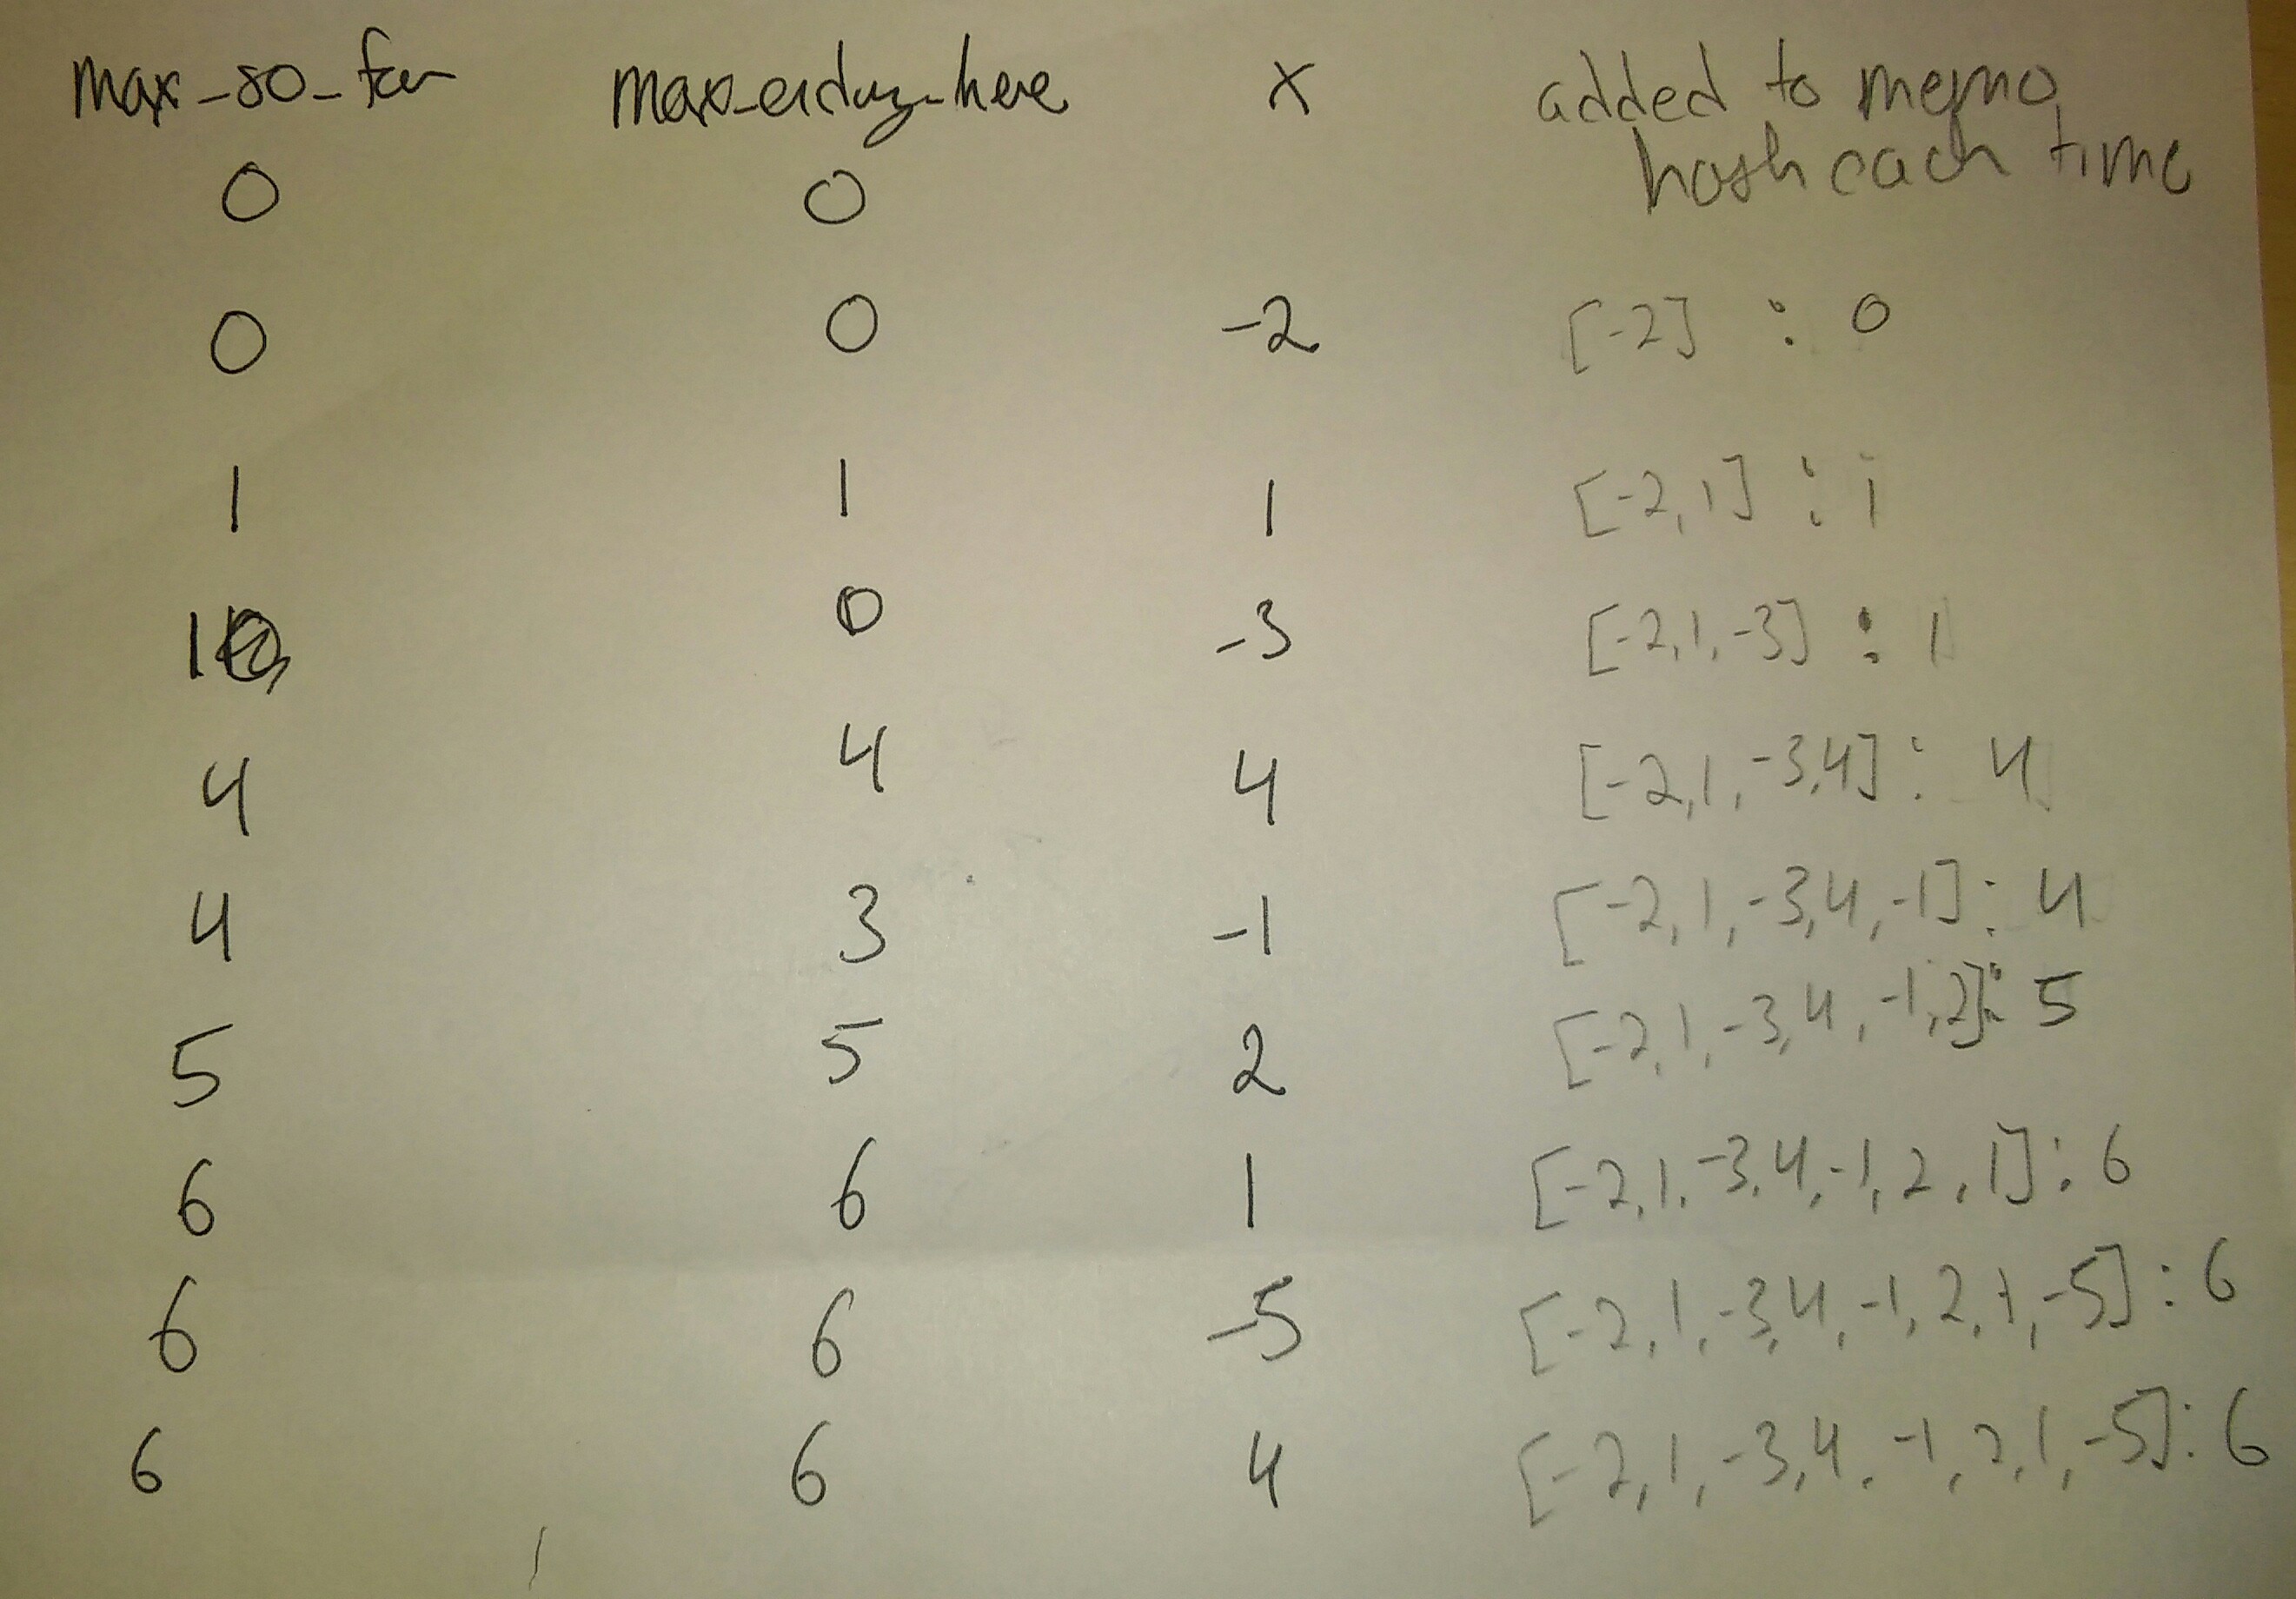 max_so_far max_ending_here x added to memo
hash each time
0 0
0 0 -2 [-2] : 0
1 1 1 [-2,1] : 1
1 0 -3 [-2,1,-3] : 1
4 4 4 [-2,1,-3,4] : 4
4 3 -1 [-2,1,-3,4,-1] : 4
5 5 2 [-2,1,-3,4,-1,2] : 5
6 6 1 [-2,1,-3,4,-1,2,1] : 6
6 6 -5 [-2,1,-3,4,-1,2,1,-5] : 6
6 6 4 [-2,1,-3,4,-1,2,1,-5] : 6